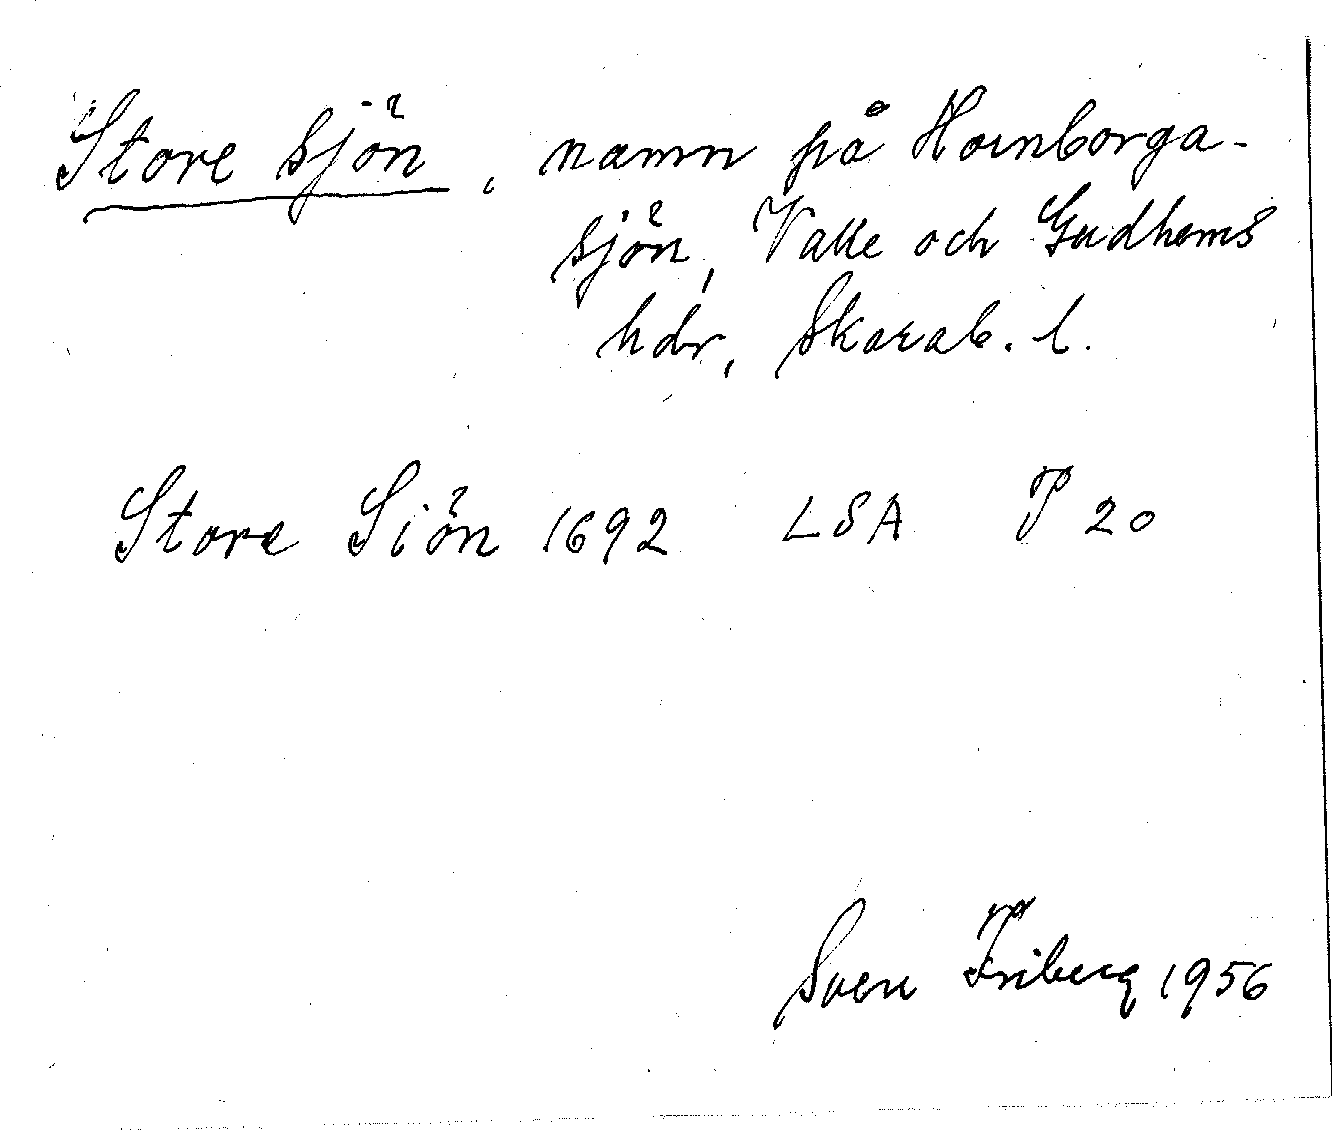 Store sjön, namn på Hornborga-
sjön, Valle och Gudhems
hdr, Skarab. l.
Store Siön 1692 LSA P 20
Sven Friberg 1956